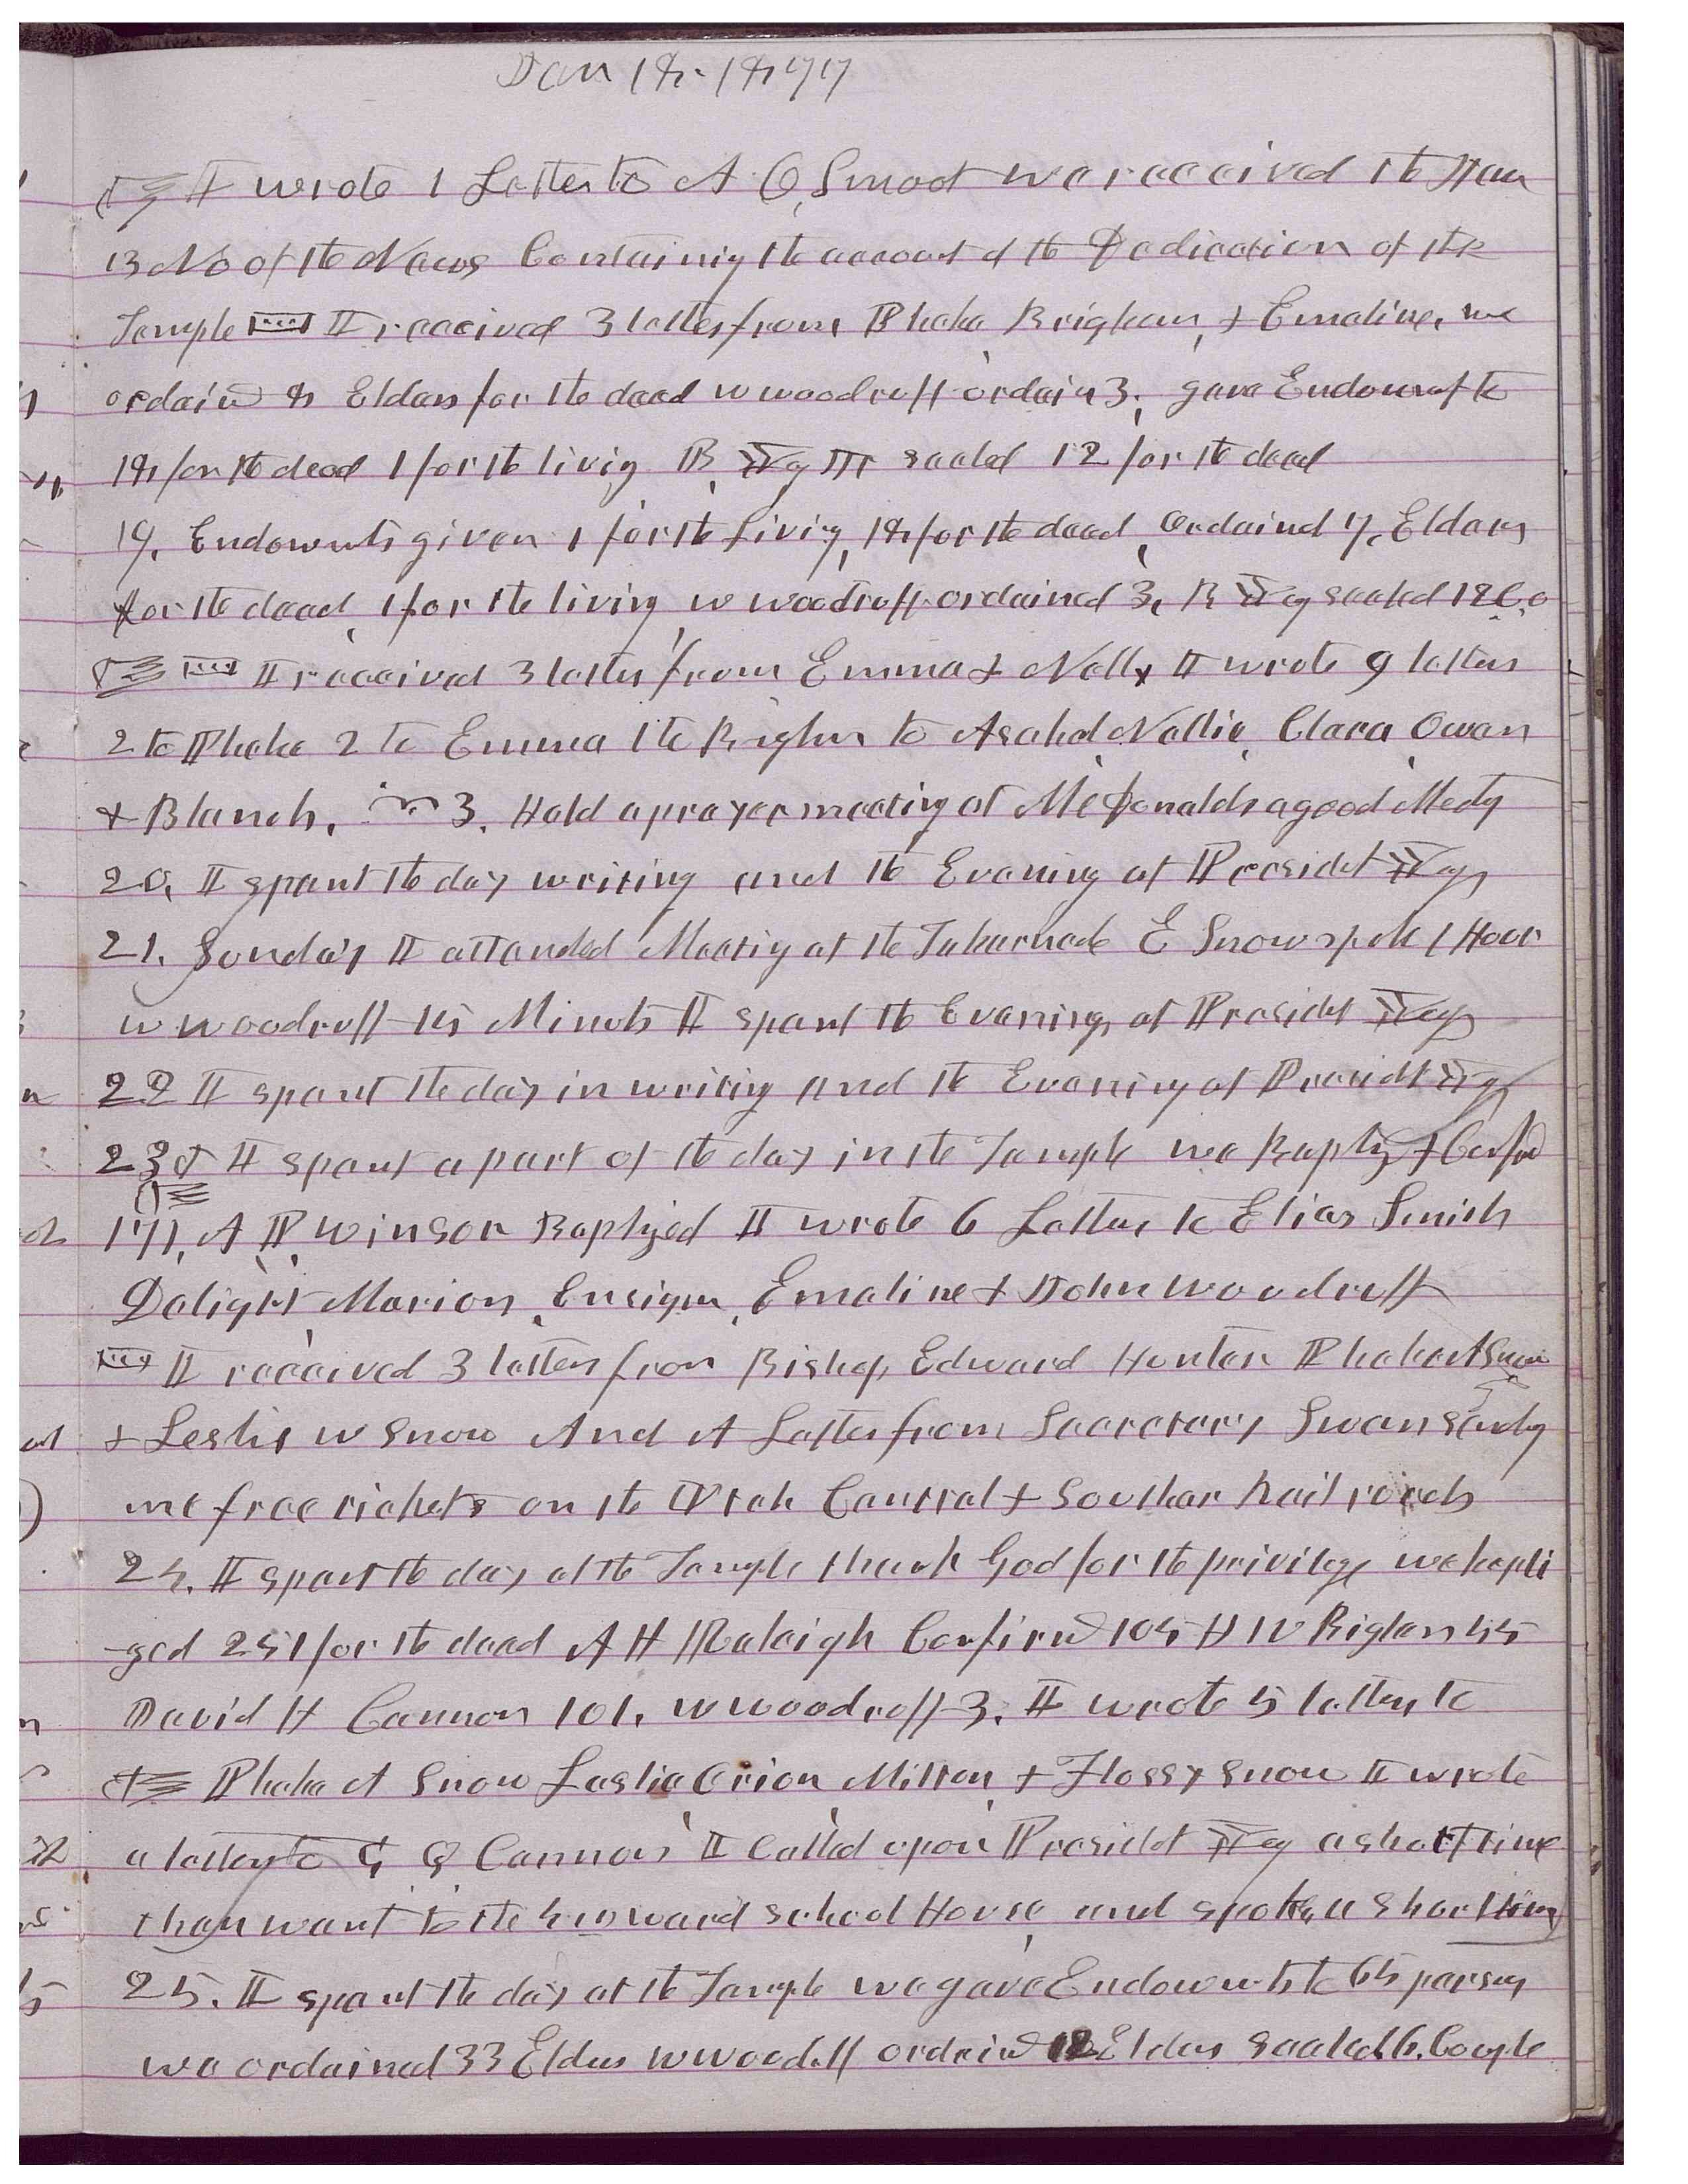 Jan 18. 1877
I wrote 1 Letter to A O, Smoot we received the Jan
13 No of the News Containing the account of the Dedication of the
Temple I received 3 letters from Phebe, Brigham, + Emeline, we
ordaind 8 Elders for the dead W Woodruff ordain 3, gave Endowmts to
18 for the dead 1 for the living B, Yg Jr sealed 12 for the dead
19, Endowmts given 1 for the living, 18 for the dead, Ordaind 7, Elders
for the dead, 1 for the living W Woodruff ordained 3, B Yg sealed 12 C,o
I received 3 letters from Emma + Nelly I wrote 9 letters
2 to Phebe 2 to Emma 1 to Brighm to Asahel, Nellie, Clara, Owen
+ Blanch, 3, Held a prayer meeting at McDonalds a good Meetg
20, I spent the day writing and the Evening at Presidet Ygs
21, Sunday I attended Meetig at the Tabernacle E Snow spok 1 Hour
W Woodruff 15 Minuts I spent the Evening, at Presidet Ygs
22 I spent the day in writig and the Evening at Presidt Ygs
23d I spent a part of the day in the Temple we Baptz + Confd
171, A P, Winsor Baptized I wrote 6 Letters to Elias Smith
Delight, Marion, Ensign, Emeline + John Woodruff
I received 3 letters from Bishop, Edward Hunter Phebe A Snow
+ Leslie W Snow And A Letter from Secretary Swan sendg
me free tickets on the Utah Central + Southern Railroads
24, I spent the day at the Temple thank God for the privilege we bapti
-zed 251 for the dead A H Raleigh Confirmd 104 H W Biglar 44
David H Cannon 101, W Woodruff 3, I wrote 5 letters to
Phebe A Snow Leslie, Orion, Milton, + Flossy Snow I wrote
a letter to G Q Cannon I Called upon Presidet Yg a short time
then went to the 4 ward school House, and spoke, a short time
25, I spent the day at the Temple we gave Endowmts to 65 persons
we ordained 33 Elders W Woodruff ordaind 12 Elders sealed, 6, Couple